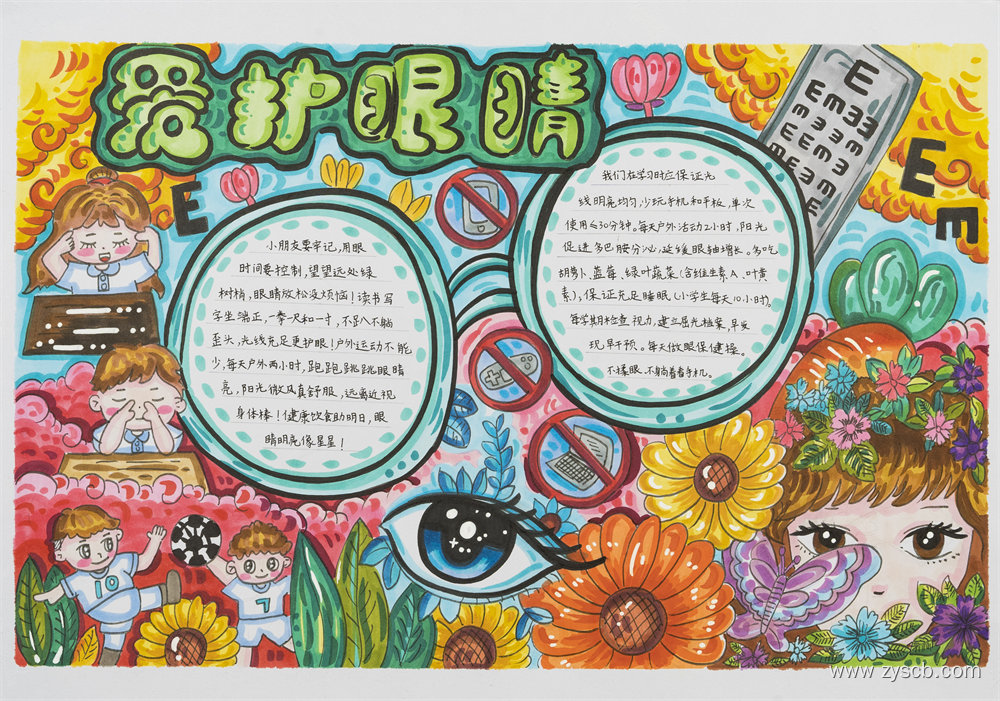 爱护眼睛
E
E m 3 3
m 3 3 m
E E m 3
m E 3 m
E
E
m
小朋友要牢记,用眼
时间要控制,望望远处绿
树梢,眼睛放松没烦恼!读书写
字坐端正,一拳一尺和一寸,不趴不躺
歪头,光线充足更护眼!户外运动不能
少,每天户外两小时,跑跑跳跳眼睛
亮,阳光微风真舒服,远离近视
身体棒!健康饮食助明目,眼
睛明亮像星星!
我们在学习时应保证光
线明亮均匀,少玩手机和平板,单次
使用≤30分钟。每天户外活动2小时,阳光
促进多巴胺分泌,延缓眼轴增长。多吃
胡萝卜、蓝莓、绿叶蔬菜(含维生素A、叶黄
素),保证充足睡眠(小学生每天10小时),
每学期检查视力,建立屈光档案,早发
现早干预。每天做眼保健操。
不揉眼、不躺着看手机。
10
7
www.zyscb.com